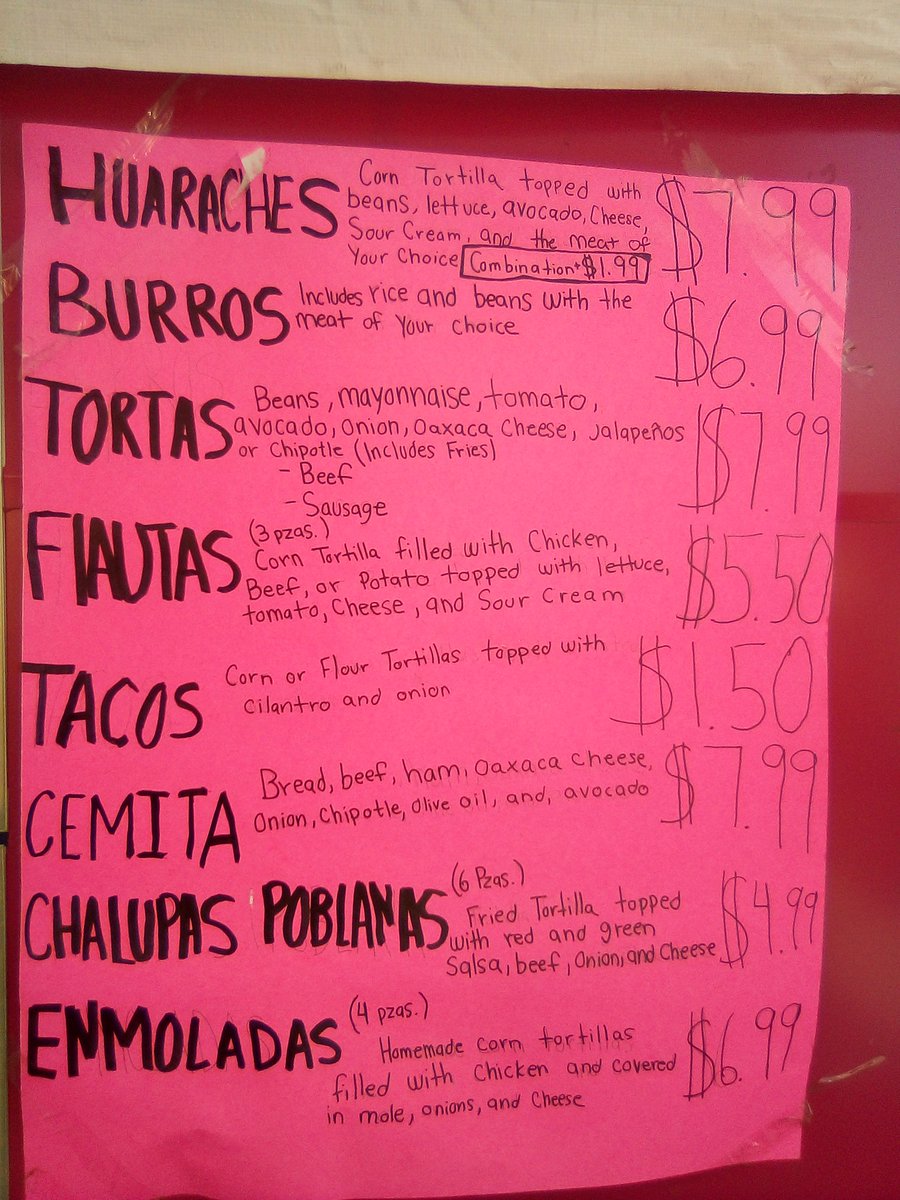 HUARACHES Corn Tortilla topped with
beans, lettuce, avocado, Cheese,
Sour Cream, and the meat of
Your Choice Combination+$1.99
$7.99
BURROS Includes rice and beans with the
meat of Your Choice
$6.99
TORTAS Beans, mayonnaise, tomato,
avocado, Onion, Oaxaca Cheese, Jalapeños
or Chipotle (Includes Fries)
- Beef
- Sausage
$7.99
FlAUTAS (3 pzas.)
Corn Tortilla filled with Chicken,
Beef, or Potato topped with lettuce,
tomato, Cheese, and Sour Cream
$5.50
TACOS Corn or Flour Tortillas topped with
Cilantro and onion
$1.50
CEMITA Bread, beef, ham, Oaxaca Cheese,
Onion, Chipotle, Olive oil, and, avocado
$7.99
CHALUPAS POBLANAS (6 Pzas.)
Fried Tortilla topped
with red and green
Salsa, beef, Onion, and Cheese
$4.99
ENMOLADAS (4 pzas.)
Homemade corn tortillas
filled with Chicken and covered
in mole, onions, and Cheese
$6.99